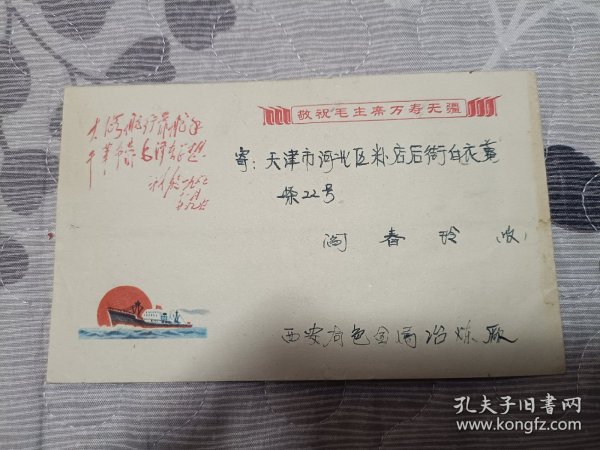 敬祝毛主席万寿无疆
大海航行靠舵手
干革命靠毛泽东思想
林彪 一九六七
寄：天津市河北区粮店后街白衣庵
22号
阎春玲 收
西安有色金属冶炼厰
孔夫子旧书网
www.kongfz.com